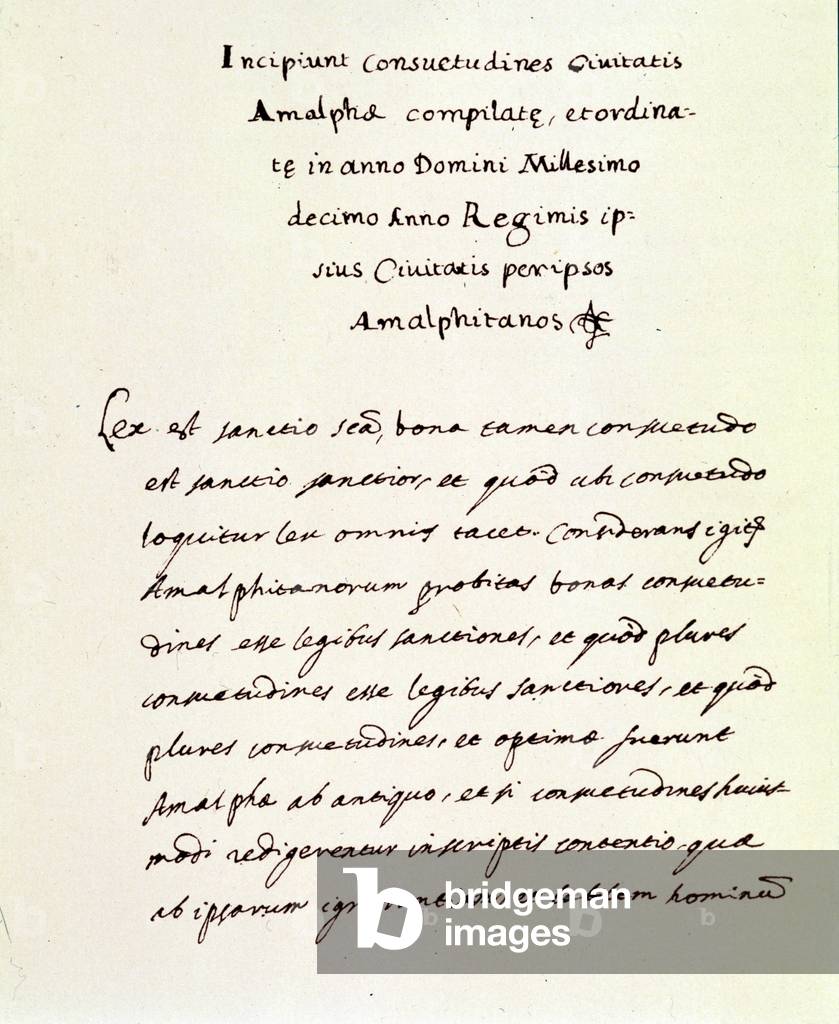 Incipiunt Consuetudines Ciuitatis
Amalphæ compilatę, et ordina=
tę in anno Domini Millesimo
decimo Anno Regimis ip=
sius Ciuitatis per ipsos
Amalphitanos &
Lex est sanctio scã, bona tamen consuetudo
est sanctio sanctior, et quòd ubi consuetudo
loquitur lex omnis tacet. Considerans igit
Amalphitanorum probitas bonas consuetu=
dines esse legibus sanctiones, et quòd plures
consuetudines esse legibus sanctiores, et quòd
plures consuetudines, et optimæ fuerunt
Amalphæ ab antiquo, et si consuetudines huius
modi redigerentur in scriptis contentio quæ
ab ipsarum hominũ
bridgeman
images